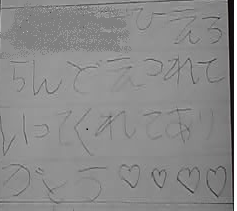 ひえう
ちんどえつれて
いってくれてあり
がとう♡♡♡♡